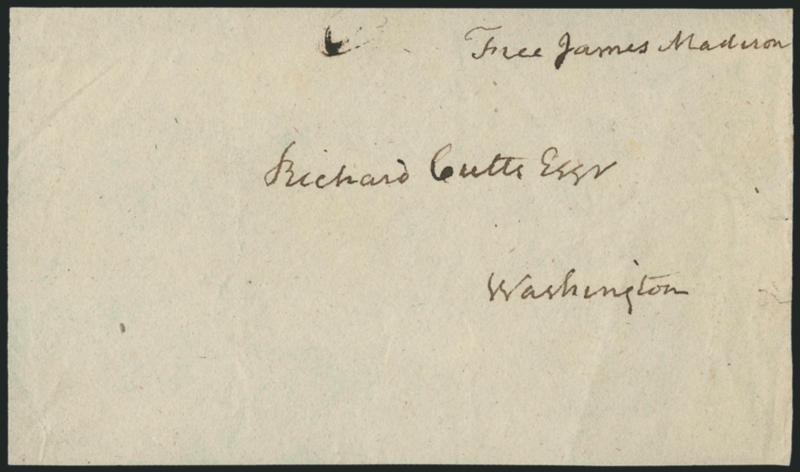 Free James Madison
Richard Cutts Esqr
Washington